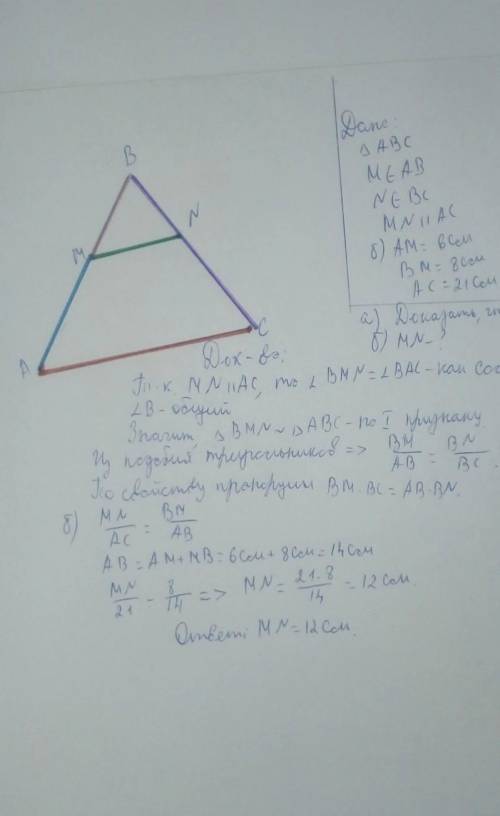 B
N
M
C
A
Дано:
△ABC
M∈AB
N∈BC
MN∥AC
б) AM=6см
BM=8см
AC=21см
а) Доказать,
б) MN-?
Док-во:
Т.к. MN∥AC, то ∠BMN=∠BAC-как соо
∠B-общий
Значит, △BMN∼△ABC-по I признаку
Из подобия треугольников => BM/AB = BN/BC.
По свойству пропорции BM·BC=AB·BN.
б) MN/AC = BM/AB
AB=AM+MB=6см+8см=14см
MN/21 = 8/14 => MN= 21·8/14 =12см.
Ответ: MN=12см.